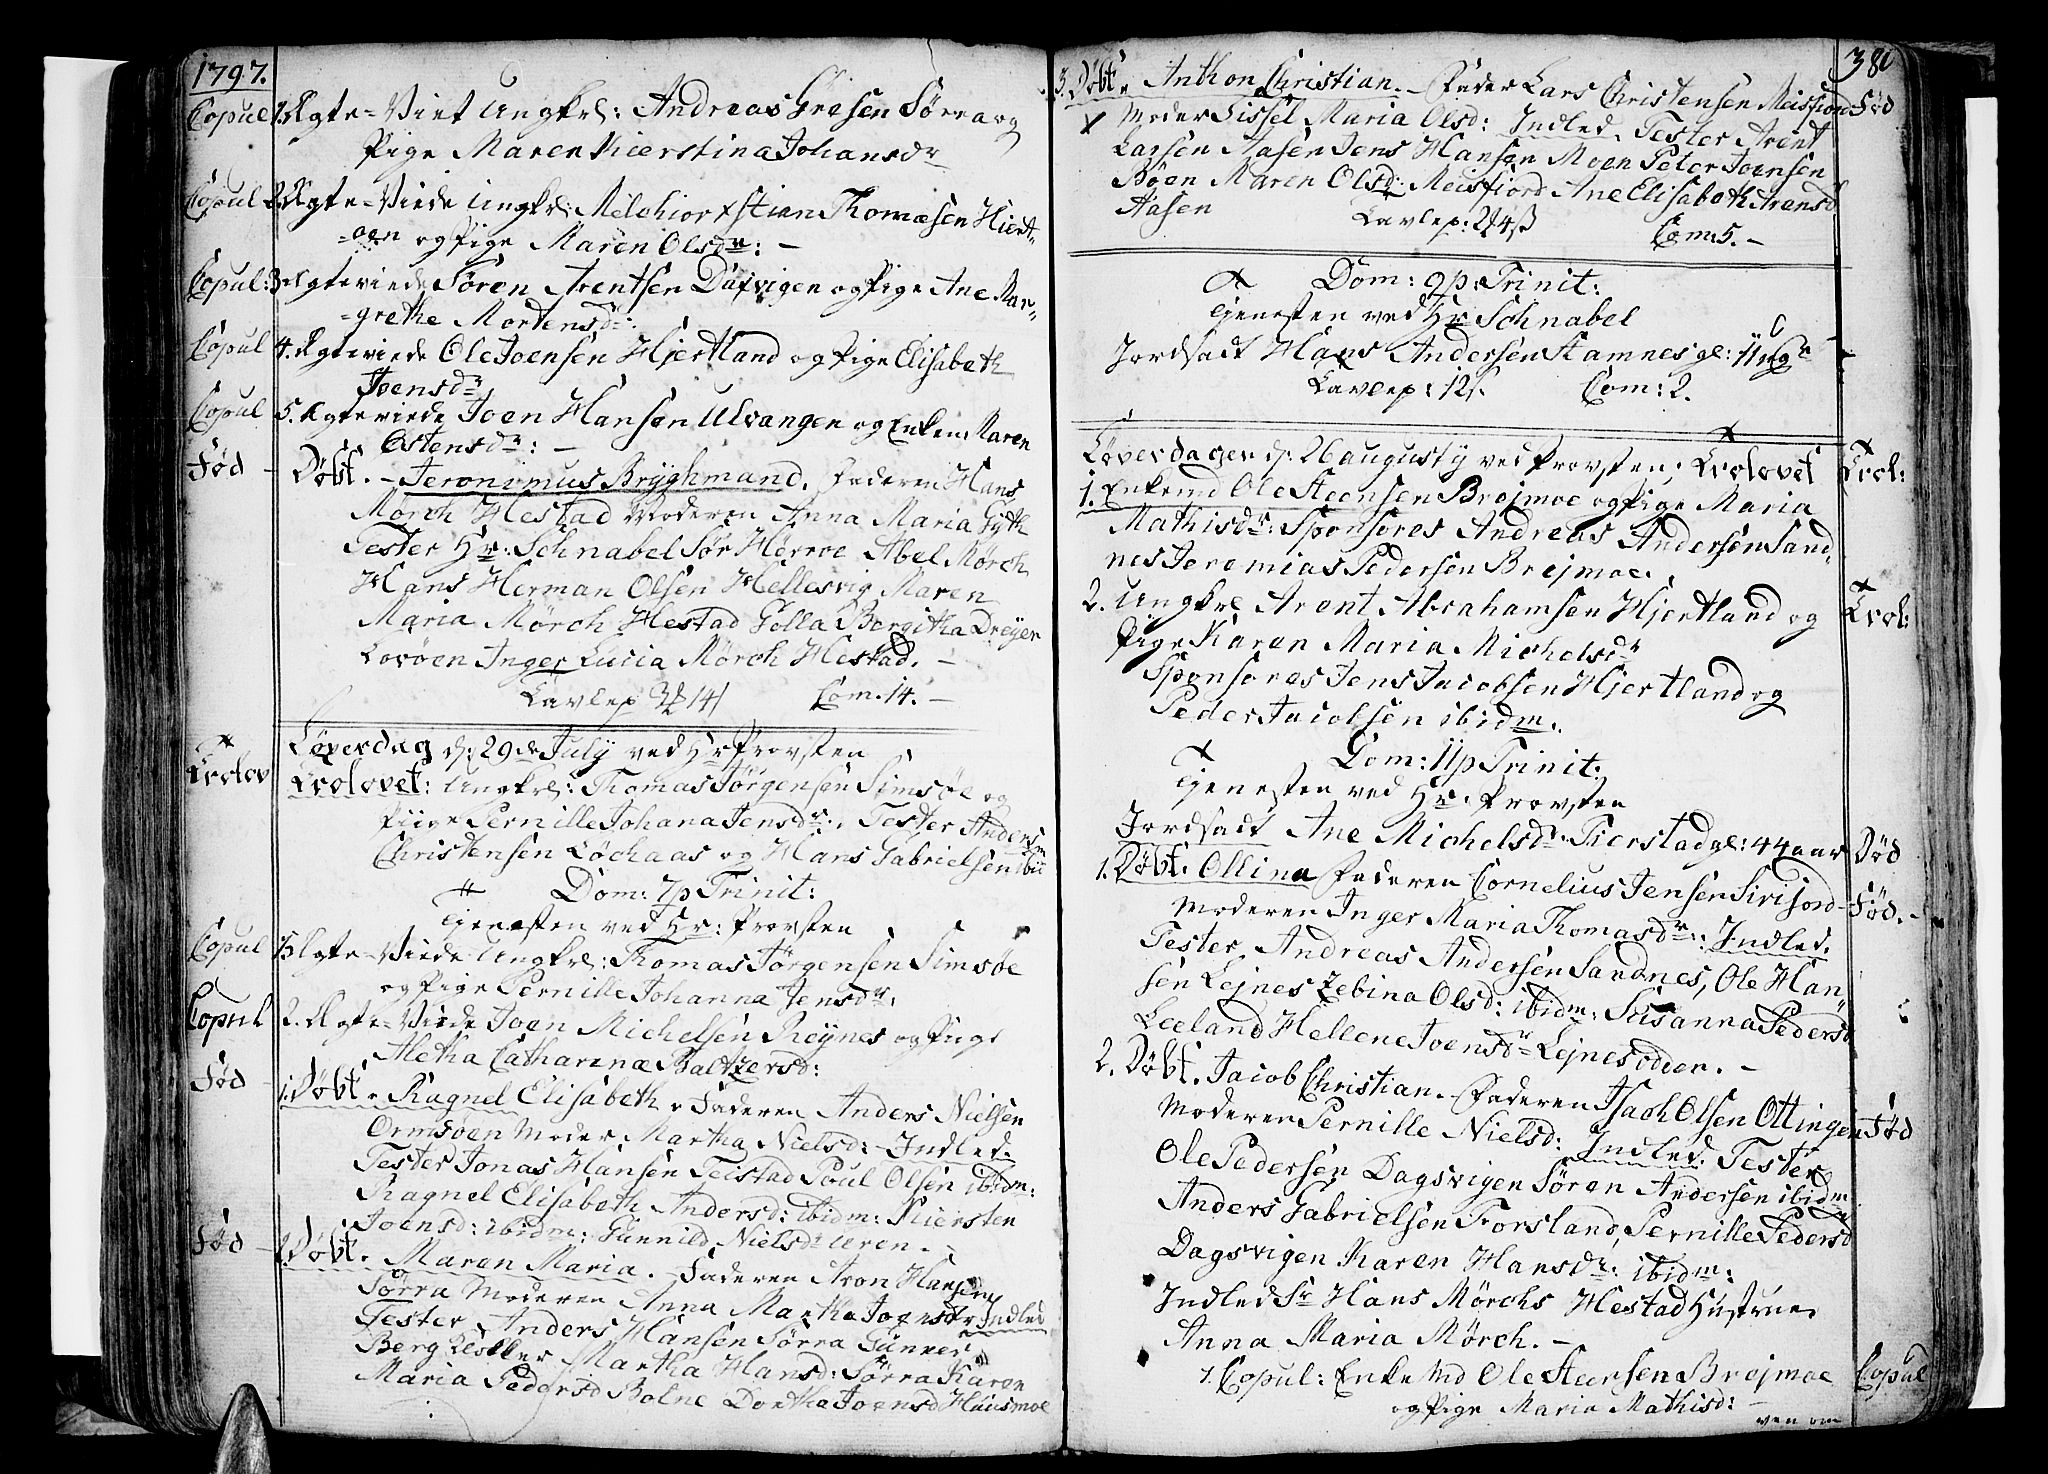 1797.
Copul 1. Ægte-Viet Ungkrl: Andreas Gresen Sørra og
Pige Maren Kierstina Johansdr
Copul 2. Ægte-Viede Ungkrl: Melchior Xstian Thomæsen Hiert-
-øen og Pige Maren Olsdr: –
Copul: 3. Ægteviede Sören Arentsen Dufvigen og Pige Ane Mar-
-grethe Mortensdr:
Copul 4. Ægteviede Ole Joensen Hjertland og Pige Elisabeth
Joensdr
Copul 5. Ægteviede Joen Hansen Ulvangen og Enken Maren
Ostensdr: –
Fød – Døbt. – Jeronimus Bryghmand. Faderen Hans
Mørch Hestad Moderen Anna Maria Gyth
Tester Hr: Schnabel Sør Herroe Abel Mørch
Hans Herman Olsen Hellesvig Maren
Maria Mørch Hestad Golla Bergitha Dreyer
Lovøen Inger Lucia Mørch Hestad. –
Tavlep 3 14 Com. 14. –
Løverdag d: 29de July ved Hr Provsten
Trolov Trolovet: Ungkrl: Thomas Jørgensen Simsøe og
Piige Pernille Johana Jensdr: Tester Anders
Christensen Løchaas og Hans Gabrielsen ibid
Dom: 7 p Trinit:
Tjenesten ved Hr: Provsten
Copul 1. Ægte-Viede Ungkrl: Thomas Jørgensen Simsøe
og Pige Pernille Johanna Jensdr:
Copul 2. Ægte-Viede Joen Michelsen Reynes og Pige
Aletha Catharina Baltzersd:
Fød – 1. Døbt. Ragnel Elisabeth. Faderen Anders Nielsen
Ormsøen Moder Martha Nielsd: – Indled.
Tester Jonas Hansen Teistad Poul Olsen ibidm:
Ragnel Elisabeth Andersd: ibidm: Kiersten
Joensd: ibidm: Gunnild Nielsdr Uren. –
Fød – 2. Døbt. Maren Maria. – Faderen Aron Hansen
Sørra Moderen Anna Martha Joensdr Indled
Tester Anders Hansen Sørra Gunner
Berg Martha Hansd: Sørra Karen
Maria Pedersd Bolne Dorthe Joensd Huusmoe
381
3. Døbt. Anthon Christian. – Fader Lars Christensen Meisfiord Fød
Moder Sissel Maria Olsd: Indled. Tester Arent
Larsen Aasen Jens Hansen Moen Peter Joensen
Bøen Maren Olsd: Meisfiord Ane Elisabeth Arensd
Aasen Tavlep: 2 4ß Com: 5. –
Dom: 9 p: Trinit:
Tjenesten ved Hr Schnabel
Jordsadt Hans Andersen Stamnes gl: 11 ugr
Tavlep: 12ß. Com: 2.
Løverdagen d: 26 augusty ved Provsten; Trolovet Trol:
1. Enkemd Ole Steensen Brejmoe og Pige Maria
Mathisdr: Sponsores Andreas Andersen Sand-
nes Jeremias Pedersen Brejmoe.
2. Ungkrl Arent Abrahamsen Hjertland og Trol:
Pige Karen Maria Michelsdr
Sponsores Jens Jacobsen Hjertland og
Peder Jacobsen ibidm.
Dom: 11 p Trinit:
Tjenesten ved Hr: Provsten
Jordsadt Ane Michelsdr Tierstad gl: 44 aar Død
1. Døbt. Ollina Faderen Cornelius Jensen Sirisord – Fød. –
Moderen Inger Maria Thomasdr: Indled.
Tester Andreas Andersen Sandnes, Ole Han-
sen Lejnes Zebina Olsd: ibidm: Susanna Pedersd
Leeland Hellene Joensdr Lejnesodden. –
2. Døbt. Jacob Christian. – Faderen Isach Olsen Ottingen Fød
Moderen Pernille Nielsd: Indled: Tester
Ole Pedersen Dagsvigen Søren Andersen ibidm
Anders Gabrielsen Forsland, Pernille Pedersd
Dagsvigen Karen Hansdr: ibidm:
Indled Sr Hans Mørchs Hestad Hustrue
Anna Maria Mørch. –
1. Copul: Enke Md Ole Steensen Brejmoe Copul
og Pige Maria Mathisd: –
ven om